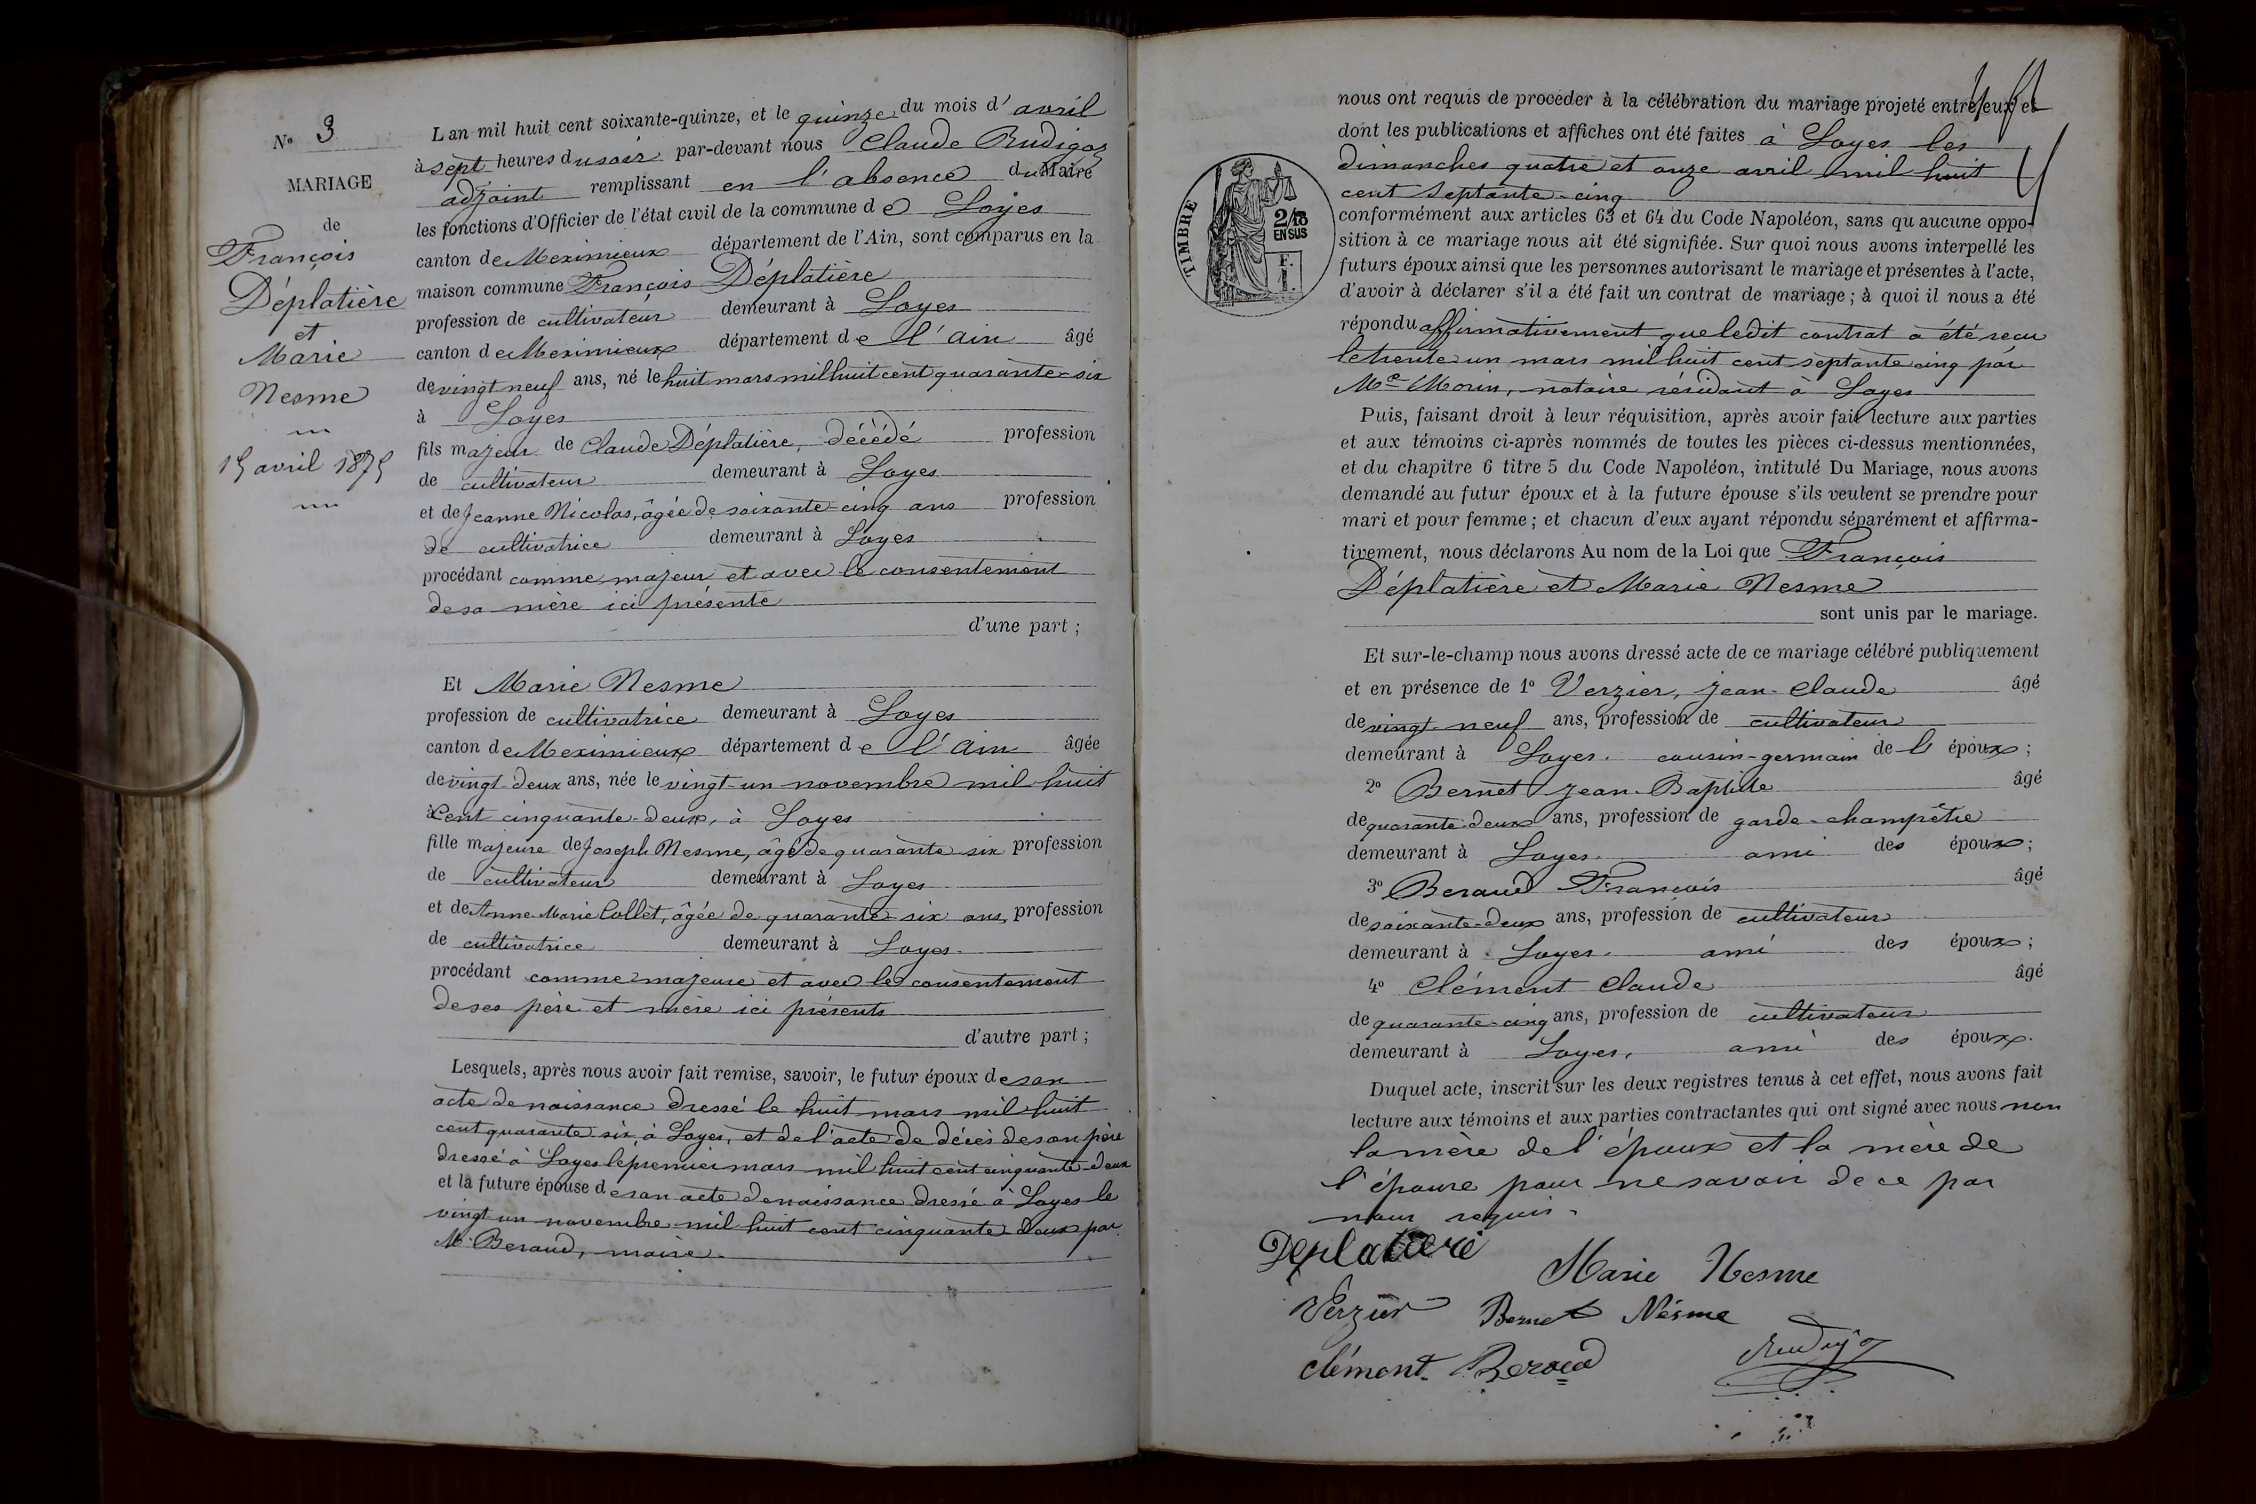 N° 3
MARIAGE
de
François
Déplatière
et
Marie
Nesme
15 avril 1875
L'an mil huit cent soixante-quinze, et le quinze du mois d'avril
à sept heures du soir par-devant nous Claude Rudigoz
adjoint remplissant en l'absence du Maire
les fonctions d'Officier de l'état civil de la commune de Loyes
canton de Meximieux département de l'Ain, sont comparus en la
maison commune François Déplatière
profession de cultivateur demeurant à Loyes
canton de Meximieux département de l'Ain âgé
de vingt neuf ans, né le huit mars mil huit cent quarante-six
à Loyes
fils majeur de Claude Déplatière, décédé profession
de cultivateur demeurant à Loyes
et de Jeanne Nicolas, âgée de soixante-cinq ans profession
de cultivatrice demeurant à Loyes
procédant comme majeur et avec le consentement
de sa mère ici présente
d'une part ;
Et Marie Nesme
profession de cultivatrice demeurant à Loyes
canton de Meximieux département de l'Ain âgée
de vingt-deux ans, née le vingt-un novembre mil huit
à cent cinquante-deux, à Loyes
fille majeure de Joseph Nesme, âgé de quarante six profession
de cultivateur demeurant à Loyes
et de Anne-Marie Collet, âgée de quarante-six ans, profession
de cultivatrice demeurant à Loyes.
procédant comme majeure et avec le consentement
de ses père et mère ici présents
d'autre part ;
Lesquels, après nous avoir fait remise, savoir, le futur époux de son
acte de naissance dressé le huit mars mil huit
cent quarante six, à Loyes, et de l'acte de décès de son père
dressé à Loyes le premier mars mil huit cent cinquante-deux
et la future épouse de son acte de naissance dressé à Loyes le
vingt un novembre mil huit cent cinquante-deux par
M. Beraud, maire.
nous ont requis de procéder à la célébration du mariage projeté entre eux et
dont les publications et affiches ont été faites à Loyes les
dimanches quatre et onze avril mil huit
cent septante-cinq
TIMBRE
2/10
EN SUS
F.
1.
conformément aux articles 63 et 64 du Code Napoléon, sans qu'aucune oppo-
sition à ce mariage nous ait été signifiée. Sur quoi nous avons interpellé les
futurs époux ainsi que les personnes autorisant le mariage et présentes à l'acte,
d'avoir à déclarer s'il a été fait un contrat de mariage ; à quoi il nous a été
répondu affirmativement que ledit contrat a été reçu
le trente un mars mil huit cent septante cinq par
Me Morin, notaire résidant à Loyes
Puis, faisant droit à leur réquisition, après avoir fait lecture aux parties
et aux témoins ci-après nommés de toutes les pièces ci-dessus mentionnées,
et du chapitre 6 titre 5 du Code Napoléon, intitulé Du Mariage, nous avons
demandé au futur époux et à la future épouse s'ils veulent se prendre pour
mari et pour femme ; et chacun d'eux ayant répondu séparément et affirma-
tivement, nous déclarons Au nom de la Loi que François
Déplatière et Marie Nesme
sont unis par le mariage.
Et sur-le-champ nous avons dressé acte de ce mariage célébré publiquement
et en présence de 1° Verzier, Jean-Claude âgé
de vingt-neuf ans, profession de cultivateur
demeurant à Loyes. cousin-germain de l'époux ;
2° Bernet Jean-Baptiste âgé
de quarante-deux ans, profession de garde-champêtre
demeurant à Loyes. ami des époux ;
3° Beraud François âgé
de soixante-deux ans, profession de cultivateur
demeurant à Loyes. ami des époux ;
4° Clément Claude âgé
de quarante-cinq ans, profession de cultivateur
demeurant à Loyes, ami des époux.
Duquel acte, inscrit sur les deux registres tenus à cet effet, nous avons fait
lecture aux témoins et aux parties contractantes qui ont signé avec nous non
la mère de l'époux et la mère de
l'épouse pour ne savoir de ce par
nous requis.
Déplatière
Marie Nesme
Verzier Bernet Nésme
Clément. Beraud
Rudigoz